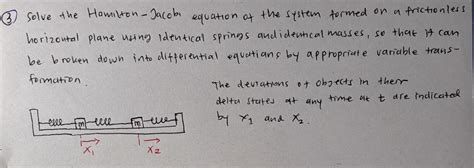 ③ Solve the Hamilton-Jacobi equation of the system formed on a frictionless
horizontal plane using identical springs and identical masses, so that it can
be broken down into differential equations by appropriate variable trans-
formation.
The deviations of objects in their
delta states at any time at t are indicated
by x₁ and x₂.
m m
x₁ x₂